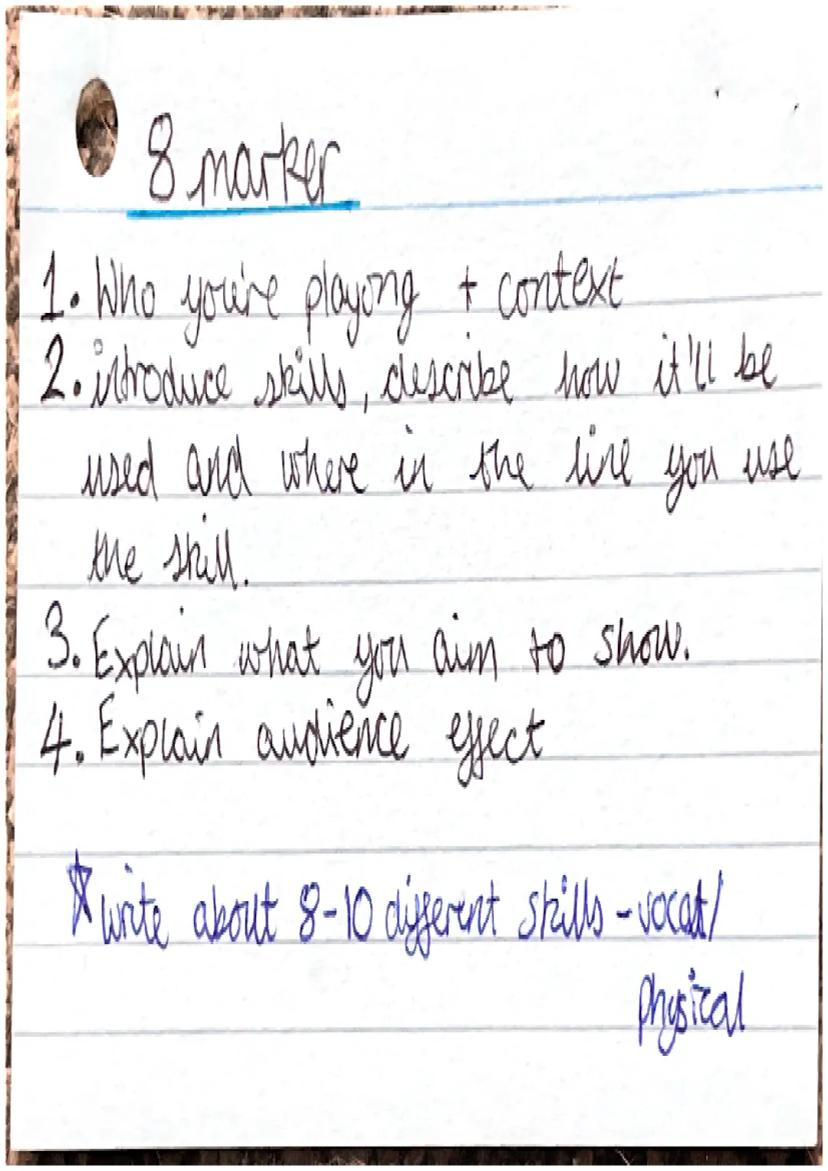 8 marker
1. Who you're playong + context
2. introduce skills, describe how it'll be
used and where in the line you use
the skill.
3. Explain what you aim to show.
4. Explain audience effect
☆ write about 8-10 different skills - vocal/
physical